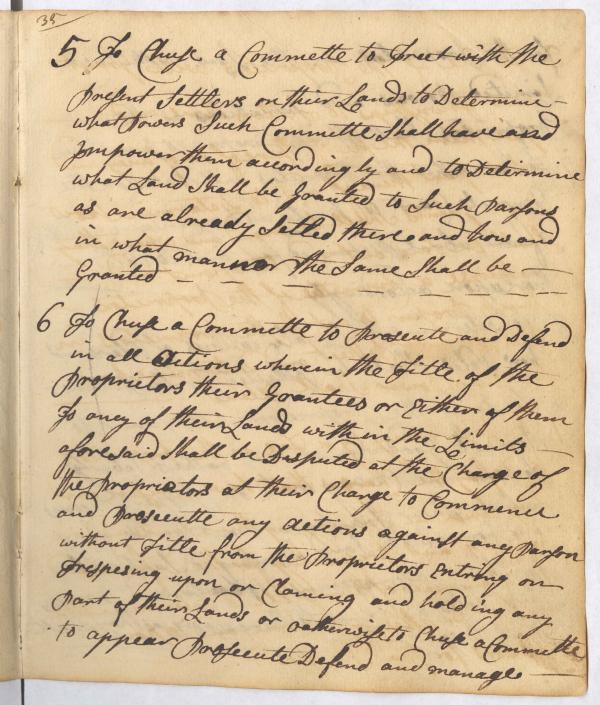 35
5 To Chuse a Commette to Treet with the
Present Settlers on their Lands to Determine
what Powers Such Committe Shall have and
Impower them accordingly and to Determine
what Land Shall be Granted to Such Parsons
as are already Setled there and how and
in what mannor the Same Shall be —
Granted — — — — — —
6 To Chuse a Commette to Prosecute and Defend
in all Actions wherein the Title of the
Proprietors their Grantees or Either of them
To aney of their Lands with in the Limits —
aforesaid Shall be Disputed at the Charge of
the Proprietors at their Charge to Commence
and Prosecutte any Actions against any Parson
without Title from the Proprietors Entring on
Trespesing upon or Claming and holding any
Part of their Lands or oatherwise to Chuse a Commette
to appear Prosecute Defend and manage —